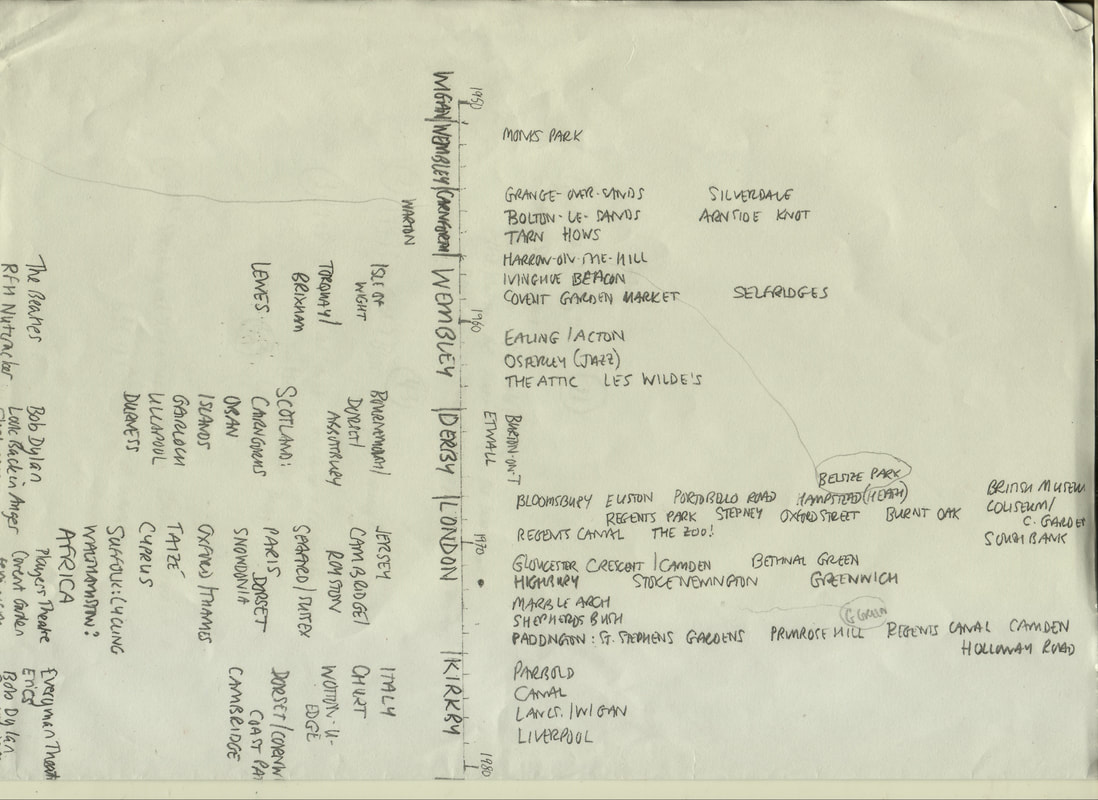 1950
WIGAN/WEMBLEY/CAIRNGORM/ WEMBLEY /DERBY /LONDON /KIRKBY
1960
1970
1980
MONKS PARK
GRANGE-OVER-SANDS SILVERDALE
BOLTON-LE-SANDS ARNSIDE KNOT
TARN HOWS
HARROW-ON-THE-HILL
IVINGHOE BEACON
COVENT GARDEN MARKET SELFRIDGES
EALING / ACTON
OSTERLEY (JAZZ)
THE ATTIC LES WILDE'S
BURTON-ON-T
ETWALL
BELSIZE PARK
BLOOMSBURY EUSTON PORTOBELLO ROAD HAMPSTEAD (HEATH)
BRITISH MUSEUM
COLISEUM/
C. GARDEN
SOUTH BANK
REGENTS PARK STEPNEY OXFORD STREET BURNT OAK
REGENTS CANAL THE ZOO!
GLOUCESTER CRESCENT / CAMDEN BETHNAL GREEN
HIGHBURY STOKE NEWINGTON GREENWICH
MARBLE ARCH
SHEPHERDS BUSH
G GREEN
PADDINGTON: ST. STEPHENS GARDENS PRIMROSE HILL REGENTS CANAL CAMDEN
HOLLOWAY ROAD
PARBOLD
CANAL
LANCS. / WIGAN
LIVERPOOL
WARTON
ISLE OF
WIGHT
TORQUAY/
BRIXHAM
LEWES
BOURNEMOUTH/
DORSET/
SCOTLAND:
CAIRNGORMS
OBAN
ISLANDS
GAIRLOCH
ULLAPOOL
DURNESS
JERSEY
CAMBRIDGE/
ROYSTON
SEAFORD / SUSSEX
PARIS DORSET
SNOWDONIA
OXFORD / THAMES
TAIZÉ
CYPRUS
SUFFOLK: CYCLING
WALTHAMSTOW?
AFRICA
ITALY
CHURT
WOTTON-U-
EDGE
DORSET / CORNW
COAST PA
CAMBRIDGE
The Beatles
RFH Nutcracker
Bob Dylan
Look Back in Anger
Players Theatre
Covent Garden
Everyman Theatre
Erics
Bob Dylan